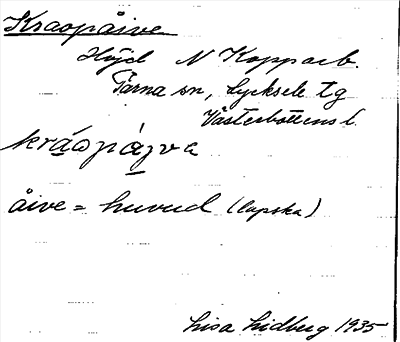 Kraopåive
Höjd N Kopparb.
Tärna sn, Lycksele tg
Västerbottens l.
kráɷpájva
åive = huvud (lapska)
Lisa Lidberg 1935